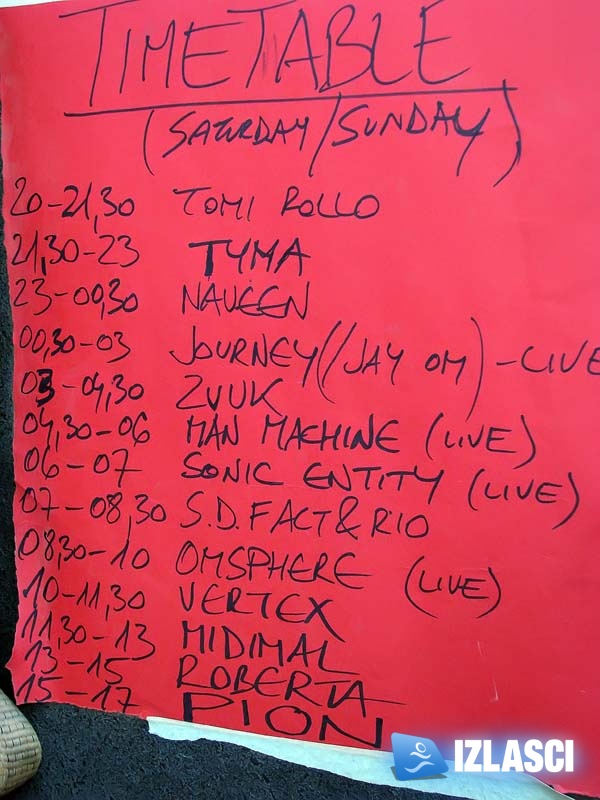 TIMETABLE
(SATURDAY/SUNDAY)
20-21,30 TOMI ROLLO
21,30-23 TYMA
23-00,30 NAVEEN
00,30-03 JOURNEY (/JAY OM) - LIVE
03-04,30 ZVUK
04,30-06 MAN MACHINE (LIVE)
06-07 SONIC ENTITY (LIVE)
07-08,30 S.D. FACT & RIO
08,30-10 OMSPHERE (LIVE)
10-11,30 VERTEX
11,30-13 MIDIMAL
13-15 ROBERTA
15-17 PION
IZLASCI